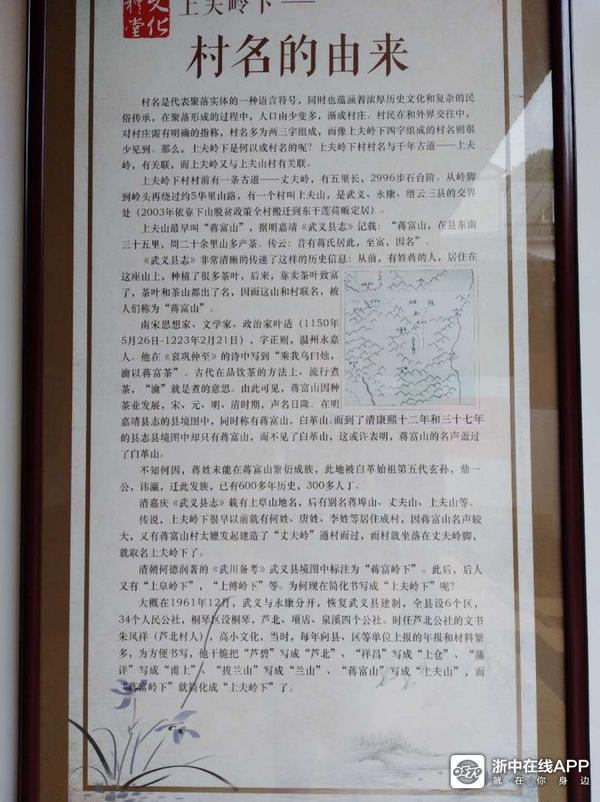 文化
礼堂
上夫岭下——
村名的由来
村名是代表聚落实体的一种语言符号，同时也蕴涵着浓厚历史文化和复杂的民
俗传承，在聚落形成的过程中，人口由少变多，渐成村庄。村民在和外界交往中，
对村庄需有明确的指称，村名多为两三字组成，而像上夫岭下四字组成的村名则很
少见到。那么，上夫岭下是何以成村名的呢？上夫岭下村村名与千年古道——上夫
岭，有关联，而上夫岭又与上夫山村有关联。
上夫岭下村村前有一条古道——丈夫岭，有五里长，2996步石台阶。从岭脚
到岭头再绕过约5华里山路，有一个村叫上夫山，是武义、永康、缙云三县的交界
处（2003年依靠下山脱贫政策全村搬迁到东干莲荷畈定居）。
上夫山最早叫“蒋富山”，据明嘉靖《武义县志》记载：“蒋富山，在县东南
三十五里，周二十余里山多产茶。传云：昔有蒋氏居此，至富，因名”。
《武义县志》非常清晰的传递了这样的历史信息：从前，有姓蒋的人，居住在
这座山上，种植了很多茶叶，后来，靠卖茶叶致富
了，茶叶和茶山都出了名，因而这山和村联名，被
人们称为“蒋富山”。
南宋思想家、文学家、政治家叶适（1150年
5月26日-1223年2月21日），字正则，温州永嘉
人。他在《哀巩仲至》的诗中写到“乘我乌曰烛，
瀹以蒋富茶”。古代在品饮茶的方法上，流行煮
茶，“瀹”就是煮的意思。由此可见，蒋富山因种
茶业发展，宋、元、明、清时期，声名日隆。在明
嘉靖县志的县境图中，同时称有蒋富山，白革山。而到了清康熙十二年和三十七年
的县志县境图中却只有蒋富山，而不见了白革山，这或许表明，蒋富山的名声盖过
了白革山。
不知何因，蒋姓未能在蒋富山繁衍成族，此地被白革始祖第五代玄孙，鼎一
公，讳瀛，迁此发族，已有600多年历史，300多人丁。
清嘉庆《武义县志》载有上阜山地名，后有别名蒋埠山、丈夫山、上夫山等。
传说，上夫岭下很早以前就有何姓、唐姓、李姓等居住成村，因蒋富山名声较
大，又有蒋富山村太嬷发起建造了“丈夫岭”通村而过，而村就坐落在丈夫岭脚，
就取名上夫岭下了。
清朝何德润著的《武川备考》武义县境图中标注为“蒋富岭下”。此后，后人
又有“上阜岭下”，“上傅岭下”等。为何现在简化书写成“上夫岭下”呢？
大概在1961年12月，武义与永康分开，恢复武义县建制，全县设6个区，
34个人民公社，桐琴区设桐琴，芦北、项店、泉溪四个公社。时任芦北公社的文书
朱凤祥（芦北村人），高小文化，当时，每年向县、区等单位上报的年报和材料繁
多，为方便书写，他干脆把“芦碧”写成“芦北”、“祥昌”写成“上仓”、“蒲
详”写成“甫上”、“拔兰山”写成“兰山”、“蒋富山”写成“上夫山”，而
“蒋富岭下”就简化成“上夫岭下”了。
浙中在线APP
就在你身边